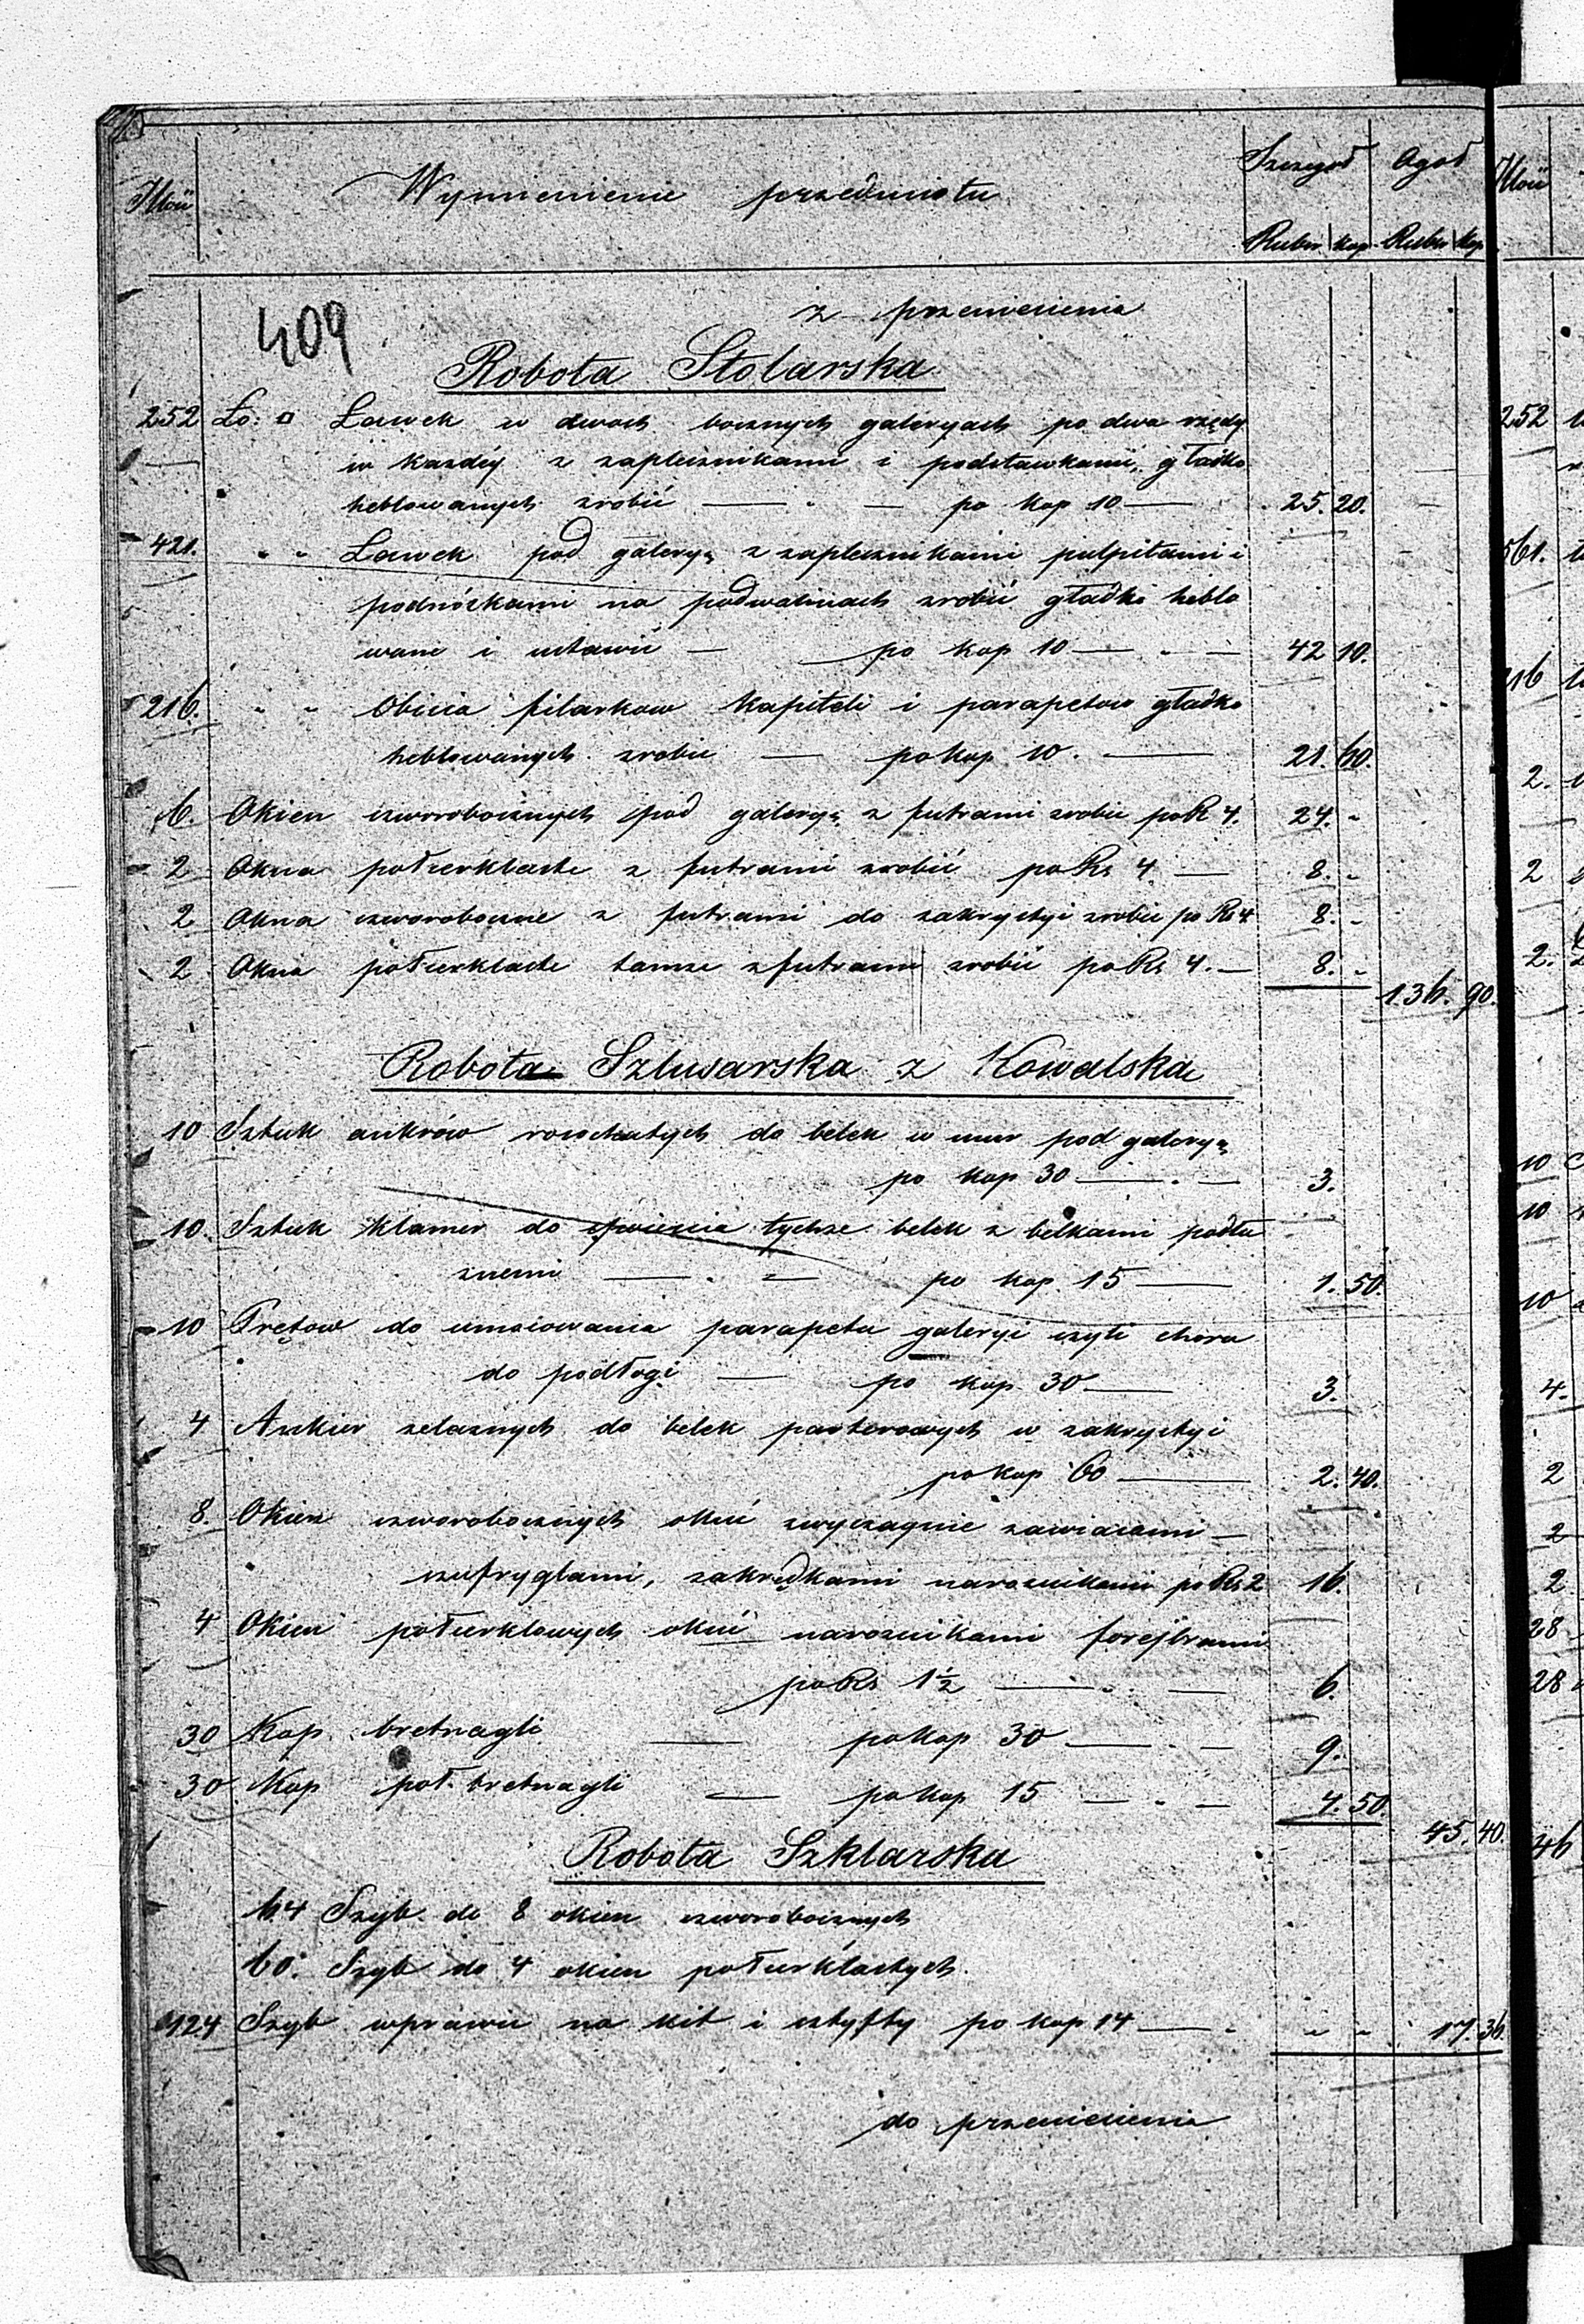 Ilość Wymienienie przedmiotu Szczegoł Ogoł
Rubw kop Rubw kop
409
z przeniesienia
Robota Stolarska
252 Ło: □ Ławek w dwoch bocznych galeryach po dwa rzędy
w każdéy z zaplecznikami i podstawkami, gładko
heblowanych zrobić — " — po kop 10 — 25. 20.
421. " " Ławek pod galeryą z zaplecznikami pulpitami i
podnóżkami na podwalinach zrobić gładko heblo
wane i ustawić — po kop 10 — " — 42 10.
216. " " Obicia filarkow kapiteli i parapetow gładko
heblowanych zrobic — po kop 10. — 21. 60.
6. Okien czworobocznych pod galeryą z futrami zrobic po R 4. 24. "
2 Okna połcerklaste z futrami zrobić po Rs 4 — 8. "
2 Okna czworoboczne z futrami do zakrystyi zrobic po Rs 4 8. "
2 Okna połcerklaste tamze z futrami zrobić po Rs 4. — 8. "
136. 90.
Robota Szlusarska z Kowalska
10 Sztuk ankrów rosochatych do belek w mur pod galeryą
po kop 30 — " — 3.
10. Sztuk klamer do spięcia tychze belek z belkami podłu
znemi — " — po kop. 15 — 1. 50.
10 Prętow do umocowania parapetu galeryi czyli chora
do podłogi — po kop 30 — 3.
4 Ankier zelaznych do belek parterowych w zakrystyi
po kop 60 — 2. 40.
8. Okien czworobocznych okuć zawiasami —
szufryglami, zakrędkami naroznikami po Rs 2 16.
4 Okien połcerklowych okuć naroznikami forejbrami
po Rs 1½ — " — 6.
30 Kop bretnagli — po kop 30 — " — 9.
30. Kop poł bretnagli — po kop 15 — " — 4. 50.
45. 40.
Robota Szklarska
64 Szyb do 8 okien czworobocznych
60. Szyb do 4 okien połcerklastych.
124 Szyb wprawić na kit i sztyfty po kop 14 — " " " 17. 36.
do przeniesienia